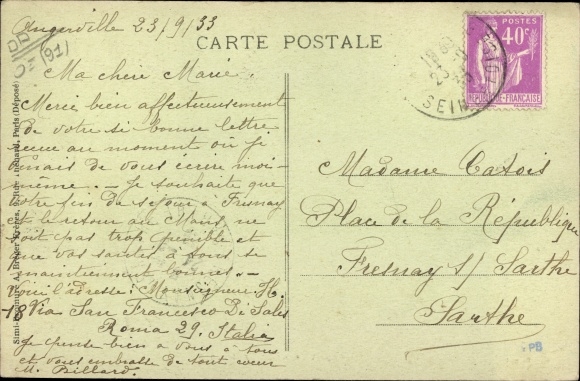 Angerville 23/9/33
(91)
CARTE POSTALE
Ma chère Marie.
Merci bien affectueusement
de votre si bonne lettre
reçue au moment où je
venais de vous écrire moi-
même. - Je souhaite que
votre fin de séjour à Fresnay
et le retour au Mans ne
soit pas trop pénible et
que vos santés à tous se
maintiennent bonnes. -
Voici l'adresse: Monseigneur H.
18 Via San Francesco Di Sales
Roma 29. Italia
Je pense bien à vous à tous
et vous embrasse de tout cœur
M. Billard.
POSTES
40c
RÉPUBLIQUE FRANÇAISE
Madame Catois
Place de la République
Fresnay s/ Sarthe
Sarthe
PB
Breger Frères, 9, Rue Thénard, Paris (Déposé)